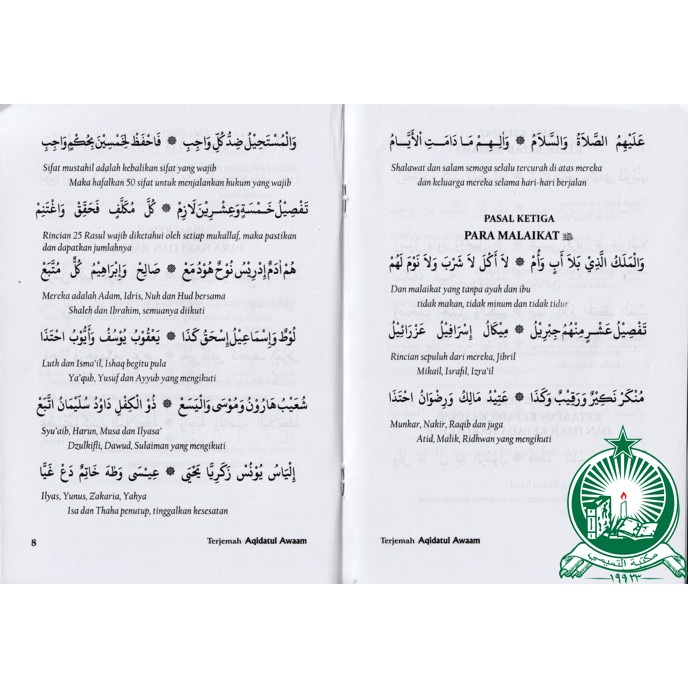 وَالْمُسْتَحِيْلُ ضِدُّ كُلِّ وَاجِبِ ۞ فَاحْفَظْ لِخَمْسِيْنَ بِحُكْمٍ وَاجِبِ
Sifat mustahil adalah kebalikan sifat yang wajib
Maka hafalkan 50 sifat untuk menjalankan hukum yang wajib
تَفْصِيْلُ خَمْسَةٍ وَعِشْرِيْنَ لَازِمْ ۞ كُلَّ مُكَلَّفٍ فَحَقِّقْ وَاغْتَنِمْ
Rincian 25 Rasul wajib diketahui oleh setiap mukallaf, maka pastikan
dan dapatkan jumlahnya
هُمْ أٰدَمٌ إِدْرِيْسُ نُوْحٌ هُوْدُ مَعْ ۞ صَالِحْ وَإِبْرَاهِيْمُ كُلٌّ مُتَّبَعْ
Mereka adalah Adam, Idris, Nuh dan Hud bersama
Shaleh dan Ibrahim, semuanya diikuti
لُوْطٌ وَاِسْمَاعِيْلُ إِسْحٰقُ كَذَا ۞ يَعْقُوْبُ يُوْسُفُ وَأَيُّوْبُ احْتَذَا
Luth dan Isma'il, Ishaq begitu pula
Ya'qub, Yusuf dan Ayyub yang mengikuti
شُعَيْبُ هَارُوْنُ وَمُوْسَى وَالْيَسَعْ ۞ ذُو الْكِفْلِ دَاوُدُ سُلَيْمَانُ اتَّبَعْ
Syu'aib, Harun, Musa dan Ilyasa'
Dzulkifli, Dawud, Sulaiman yang mengikuti
إِلْيَاسُ يُوْنُسُ زَكَرِيَّا يَحْيَى ۞ عِيْسَى وَطٰهَ خَاتِمٌ دَعْ غَيَّا
Ilyas, Yunus, Zakaria, Yahya
Isa dan Thaha penutup, tinggalkan kesesatan
8
Terjemah Aqidatul Awaam
عَلَيْهِمُ الصَّلَاةُ وَالسَّلَامُ ۞ وَاٰلِهِمْ مَا دَامَتِ الْأَيَّامُ
Shalawat dan salam semoga selalu tercurah di atas mereka
dan keluarga mereka selama hari-hari berjalan
PASAL KETIGA
PARA MALAIKAT
وَالْمَلَكُ الَّذِيْ بِلَا أَبٍ وَأُمْ ۞ لَا أَكْلَ لَا شَرْبَ وَلَا نَوْمَ لَهُمْ
Dan malaikat yang tanpa ayah dan ibu
tidak makan, tidak minum dan tidak tidur
تَفْصِيْلُ عَشْرٍ مِنْهُمُ جِبْرِيْلُ ۞ مِيْكَالُ إِسْرَافِيْلُ عَزْرَائِيْلُ
Rincian sepuluh dari mereka, Jibril
Mikail, Israfil, Izra'il
مُنْكَرْ نَكِيْرٌ وَرَقِيْبٌ وَكَذَا ۞ عَتِيْدُ مَالِكٌ وَرِضْوَانُ احْتَذَا
Munkar, Nakir, Raqib dan juga
Atid, Malik, Ridhwan yang mengikuti
Terjemah Aqidatul Awaam
مكتبة التميمي